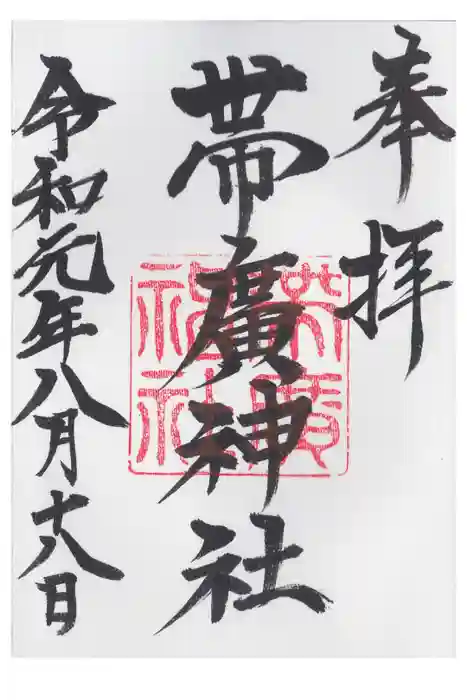 奉拝
帯廣神社
帯廣神社
令和元年八月十八日